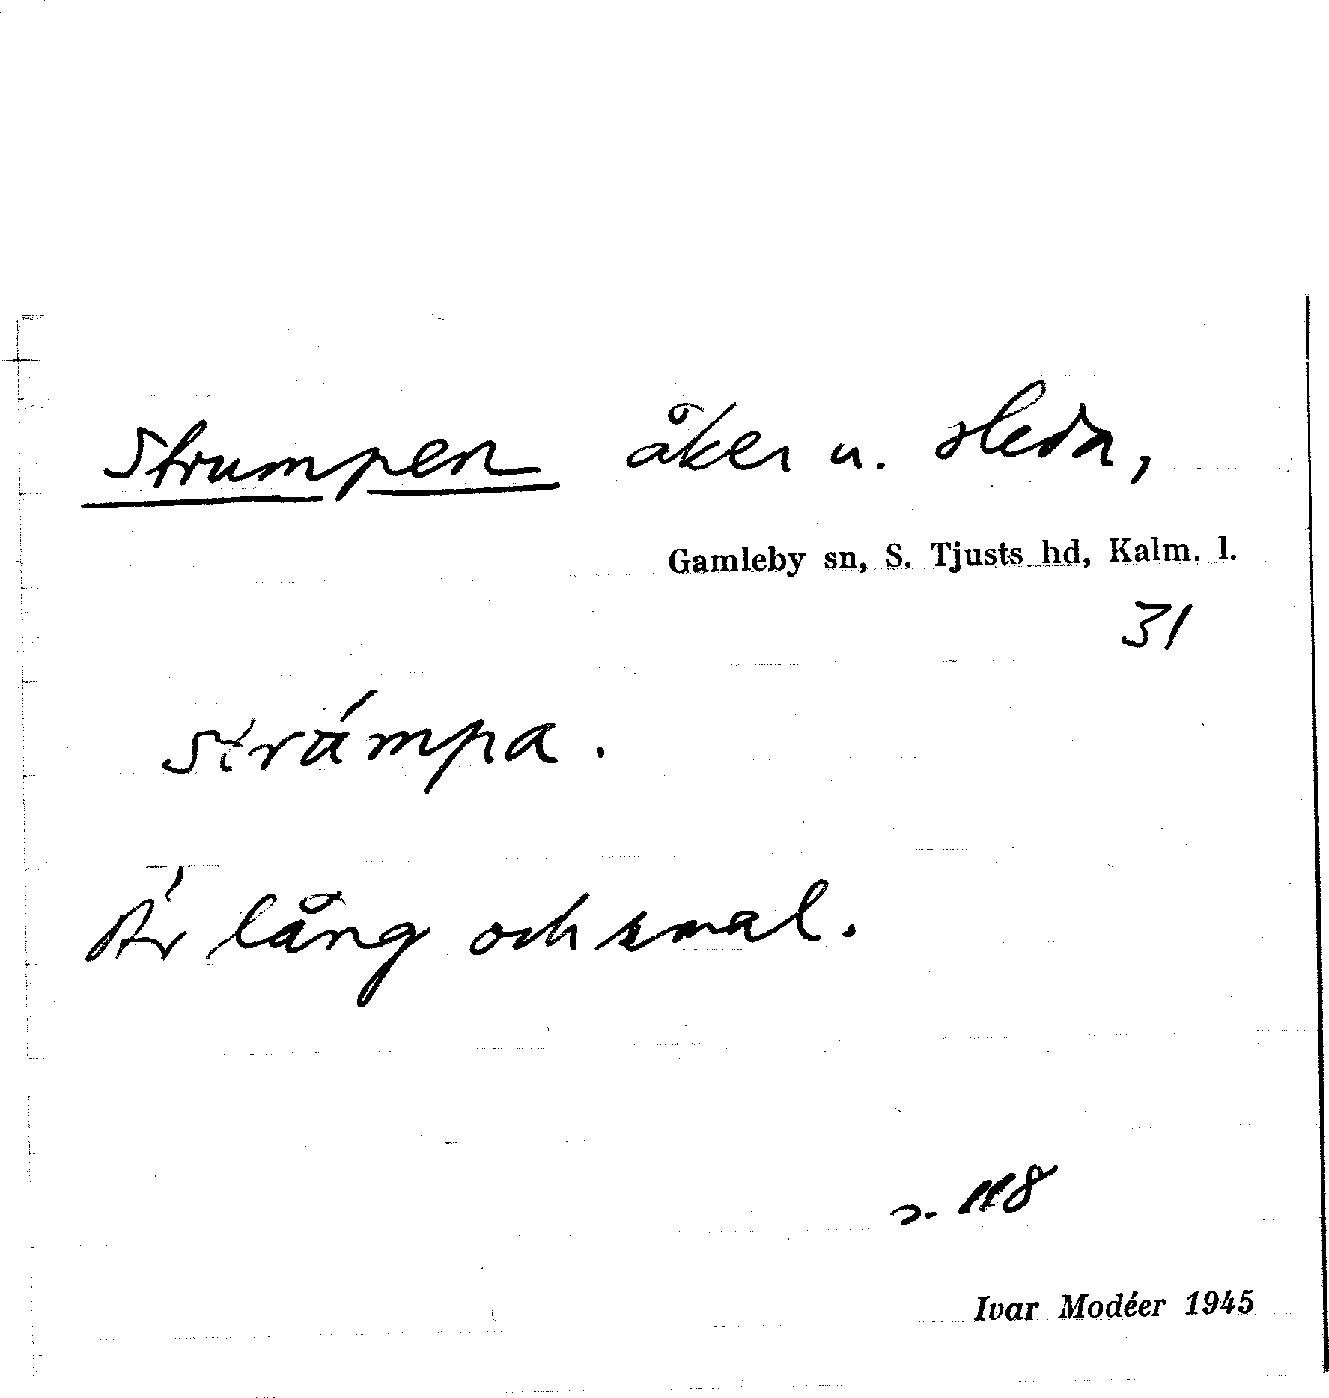 Strumpen åker u. Heda,
Gamleby sn, S. Tjusts hd, Kalm. l.
31
strúmpa.
Är lång och smal.
s. 118
Ivar Modéer 1945